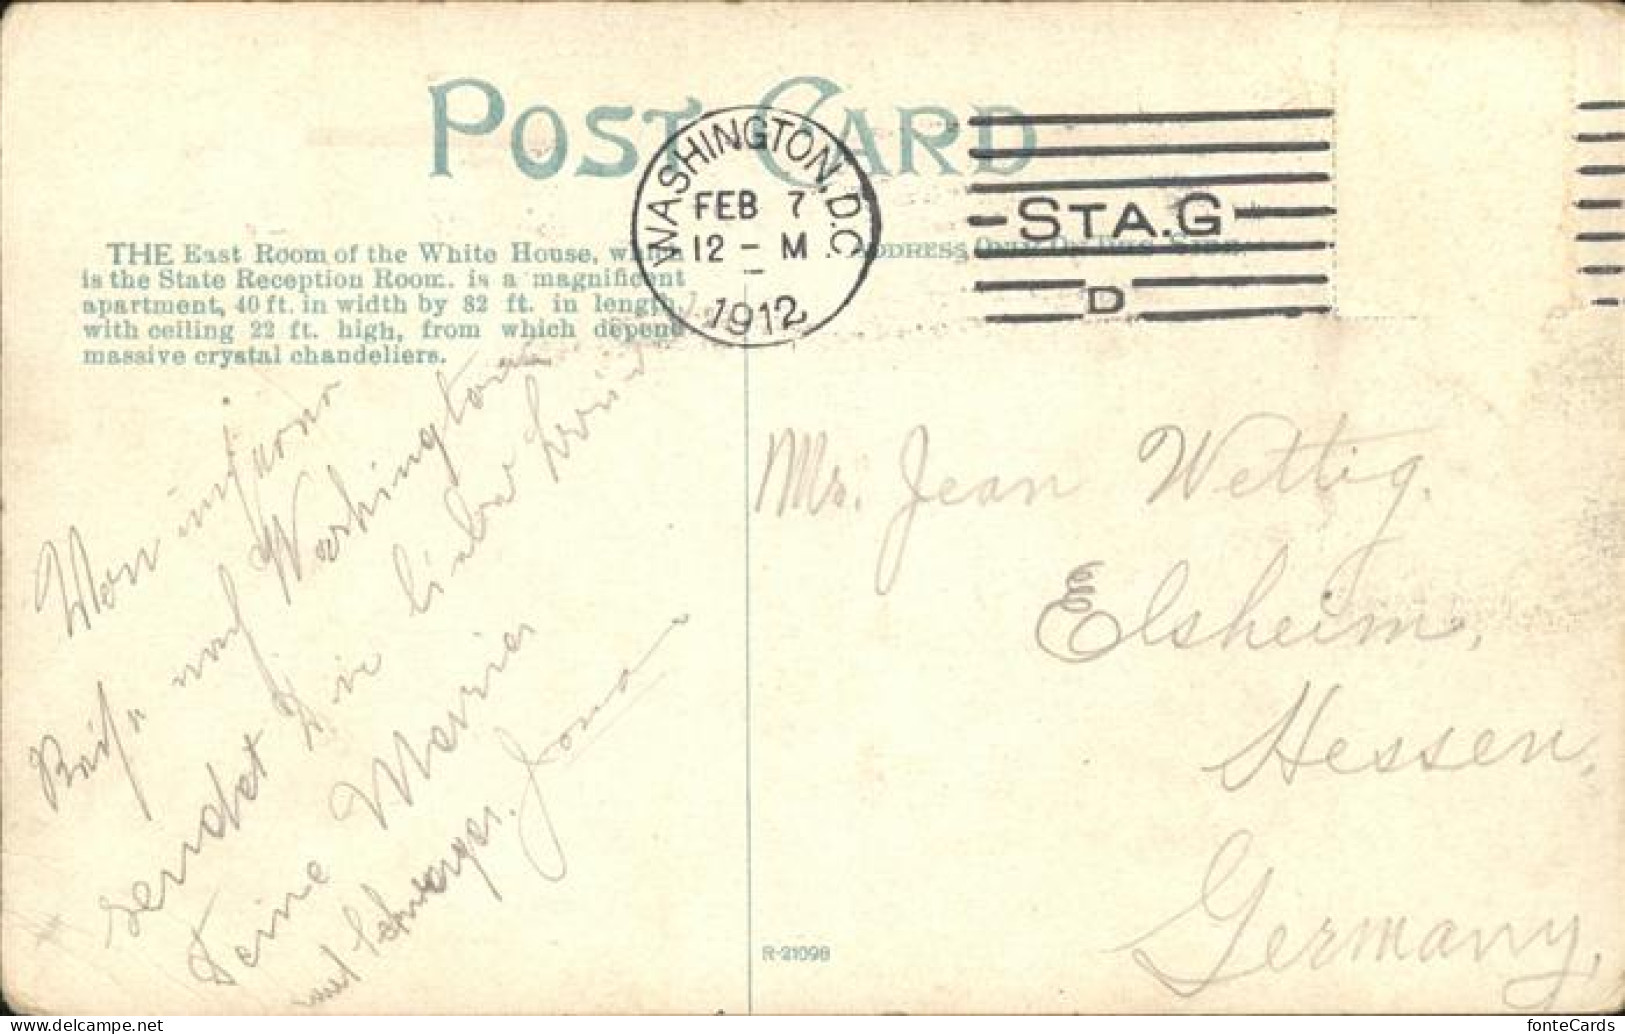 POST CARD
WASHINGTON, D.C.
FEB 7
12 - M
1912
STA.G
D
THE East Room of the White House, which
is the State Reception Room. is a magnificent
apartment, 40 ft. in width by 82 ft. in length,
with ceiling 22 ft. high, from which depend
massive crystal chandeliers.
ADDRESS ONLY ON THIS SIDE
Von unserer
Reise nach Washington
sendet Dir
Deine Marie
und Schwager. Jona
Mr. Jean Wettig.
Elsheim,
Hessen,
Germany,
R-21098
fonteCards
www.delcampe.net